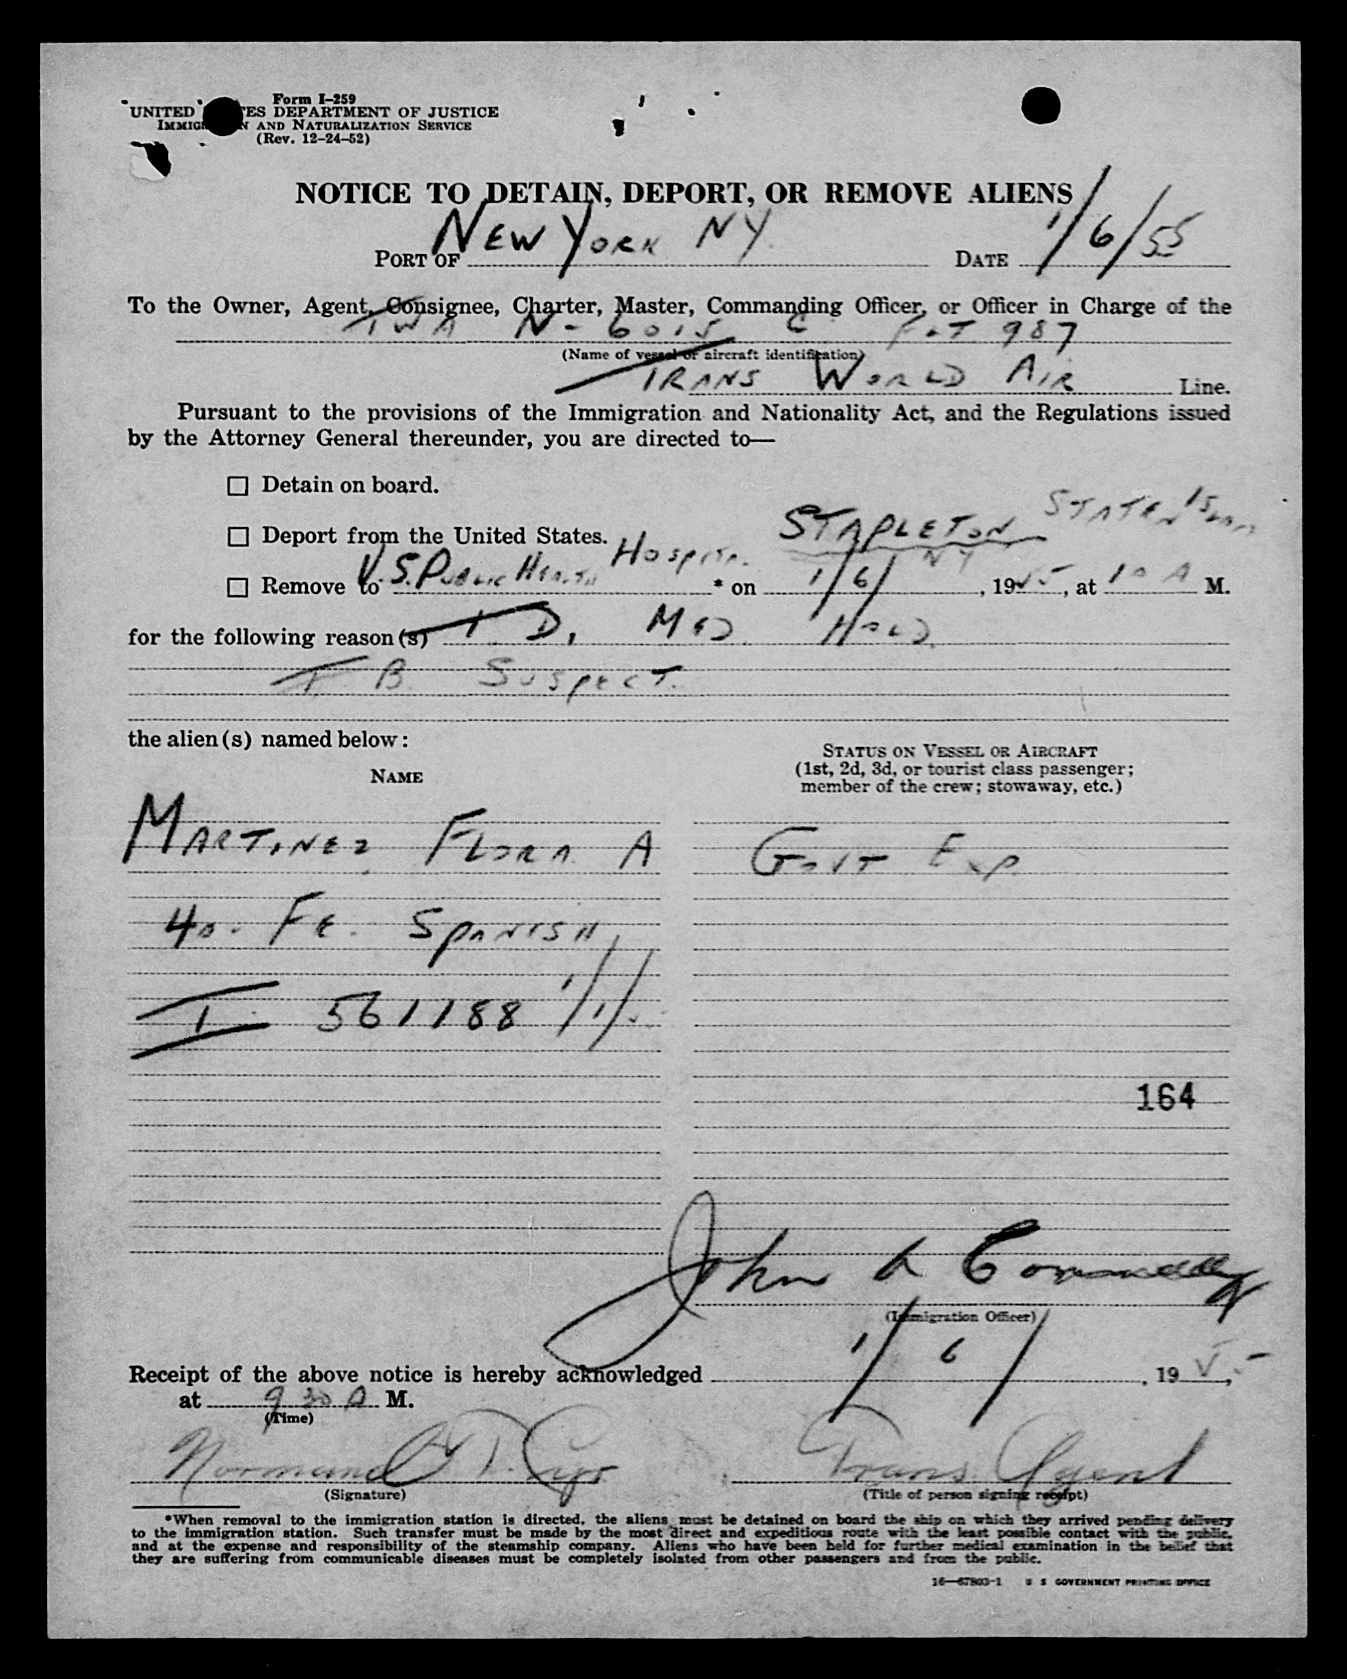 Form I-259
UNITED ES DEPARTMENT OF JUSTICE
IMMIG N AND NATURALIZATION SERVICE
(Rev. 12-24-52)
NOTICE TO DETAIN, DEPORT, OR REMOVE ALIENS
PORT OF NEW YORK NY DATE 1/6/55
To the Owner, Agent, Consignee, Charter, Master, Commanding Officer, or Officer in Charge of the
TWA N-6015 C FLT 987
(Name of vessel or aircraft identification)
TRANS WORLD AIR Line.
Pursuant to the provisions of the Immigration and Nationality Act, and the Regulations issued
by the Attorney General thereunder, you are directed to—
☐ Detain on board.
☐ Deport from the United States.
STAPLETON STATEN ISLAN
☐ Remove to U.S. PUBLIC HEALTH HOSPITAL * on 1/6/ NY, 1955, at 10 A M.
for the following reason(s) T D, MED HOLD.
T B. SUSPECT.
the alien(s) named below:
NAME
STATUS ON VESSEL OR AIRCRAFT
(1st, 2d, 3d, or tourist class passenger;
member of the crew; stowaway, etc.)
MARTINEZ FLORA A GOVT EXP.
40. FE. SPANISH
I 561188 1/1/.
164
John A Connelly
(Immigration Officer)
Receipt of the above notice is hereby acknowledged 1/6/, 1955,
at 9 30 A M.
(Time)
Normand T. Cyr Trans. Agent
(Signature) (Title of person signing receipt)
*When removal to the immigration station is directed, the aliens must be detained on board the ship on which they arrived pending delivery
to the immigration station. Such transfer must be made by the most direct and expeditious route with the least possible contact with the public,
and at the expense and responsibility of the steamship company. Aliens who have been held for further medical examination in the belief that
they are suffering from communicable diseases must be completely isolated from other passengers and from the public.
16—67803-1 U S GOVERNMENT PRINTING OFFICE